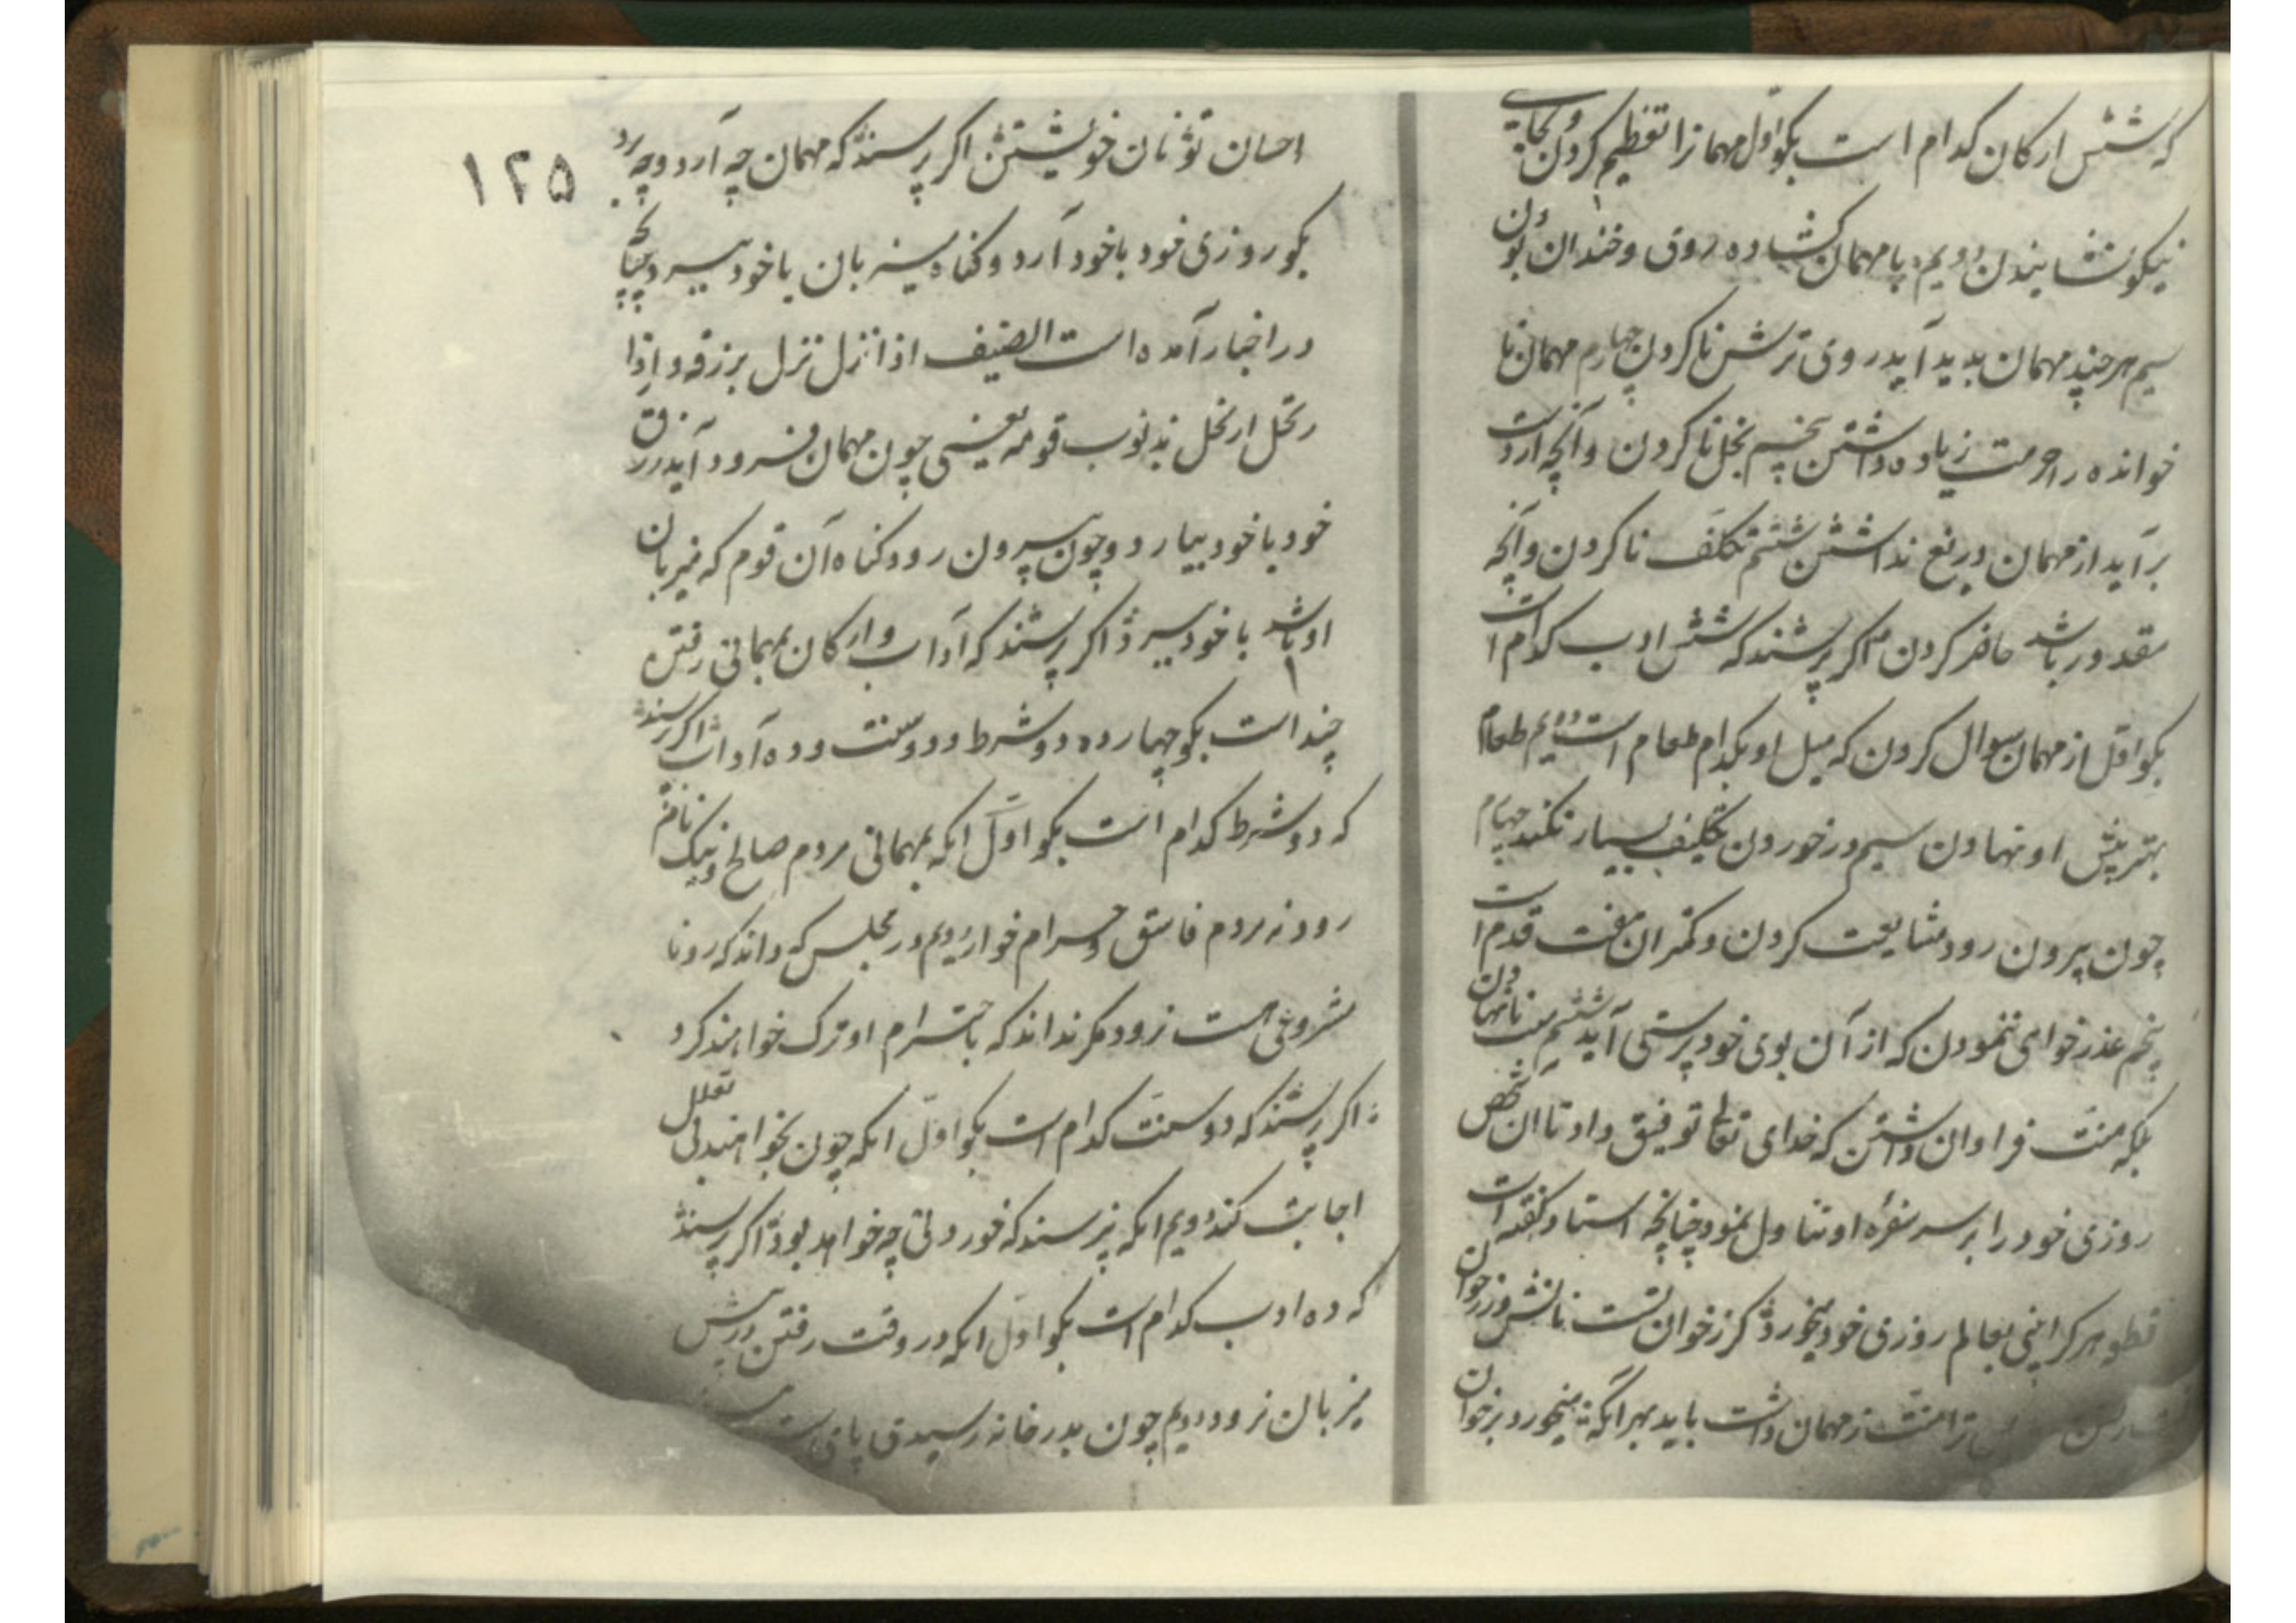 که شش ارکان کدام است بکو اول مهمانرا تعظیم کردن و بجایی
نیکو نشانیدن دویم با مهمان کشاده روی و خندان بودن
سیم هر چند مهمان بدید آید روی ترش نا کردن چهارم مهمان نا
خوانده را حرمت زیاده داشتن پنجم بخل نا کردن و آنچه از دست
برآید از مهمان دریغ نداشتن ششم تکلف نا کردن و آنچه
مقدور باشد حاضر کردن اکر پرسند که شش ادب کدام است
بکو اول از مهمان سوال کردن که میل او بکدام طعام است دویم طعام
بهتر پیش او نهادن سیم در خوردن تکلیف بسیار نکند چهارم
چون بیرون رود مشایعت کردن و کمتر ان هفت قدم است
پنجم عذر خواهی ننمودن که از آن بوی خودپرستی آید ششم منت نانهادن
بلکه منت فراوان داشتن که خدای تعالی توفیق داد تا ان شخص
روزی خود را بر سر سفره او تناول نمود چنانچه استاد کفته است
قطعه هر کرا بینی بعالم روزی خود میخورد کر ز خوان تست نانش ور ز خوان
ترا منت ز مهمان داشت باید بهر آنکه میخورد بر خوان
۱۲۵
احسان تو نان خویشتن اکر پرسند که مهمان چه آرد و چه برد
بکو روزی خود با خود آرد و کناه میزبان با خود ببرد چنانچه
در اخبار آمده است الضیف اذا نزل نزل برزقه و اذا
رتحل ارتحل بذنوب قومه یعنی چون مهمان فرود آید رزق
خود با خود بیارد و چون بیرون رود کناه آن قوم که میزبان
او باشد با خود ببرد اکر پرسند که آداب و ارکان بمهمانی رفتن
چند است بکو چهارده دو شرط و دو سنت و ده آداب اکر پرسند
که دو شرط کدام است بکو اول انکه بمهمانی مردم صالح و نیک نام
رود نه مردم فاسق و حرام خوار دویم در مجلس که داند که رو نا
مشروعی هست نرود مکر نداند که باحترام او ترک خواهند کرد
اکر پرسند که دو سنت کدام است بکو اول انکه چون بخوانند بی تعلل
اجابت کند دویم انکه نپرسند که خوردنی چه خواهد بود اکر پرسند
که ده ادب کدام است بکو اول انکه در وقت رفتن در پیش
میزبان نرود دویم چون بدر خانه رسید